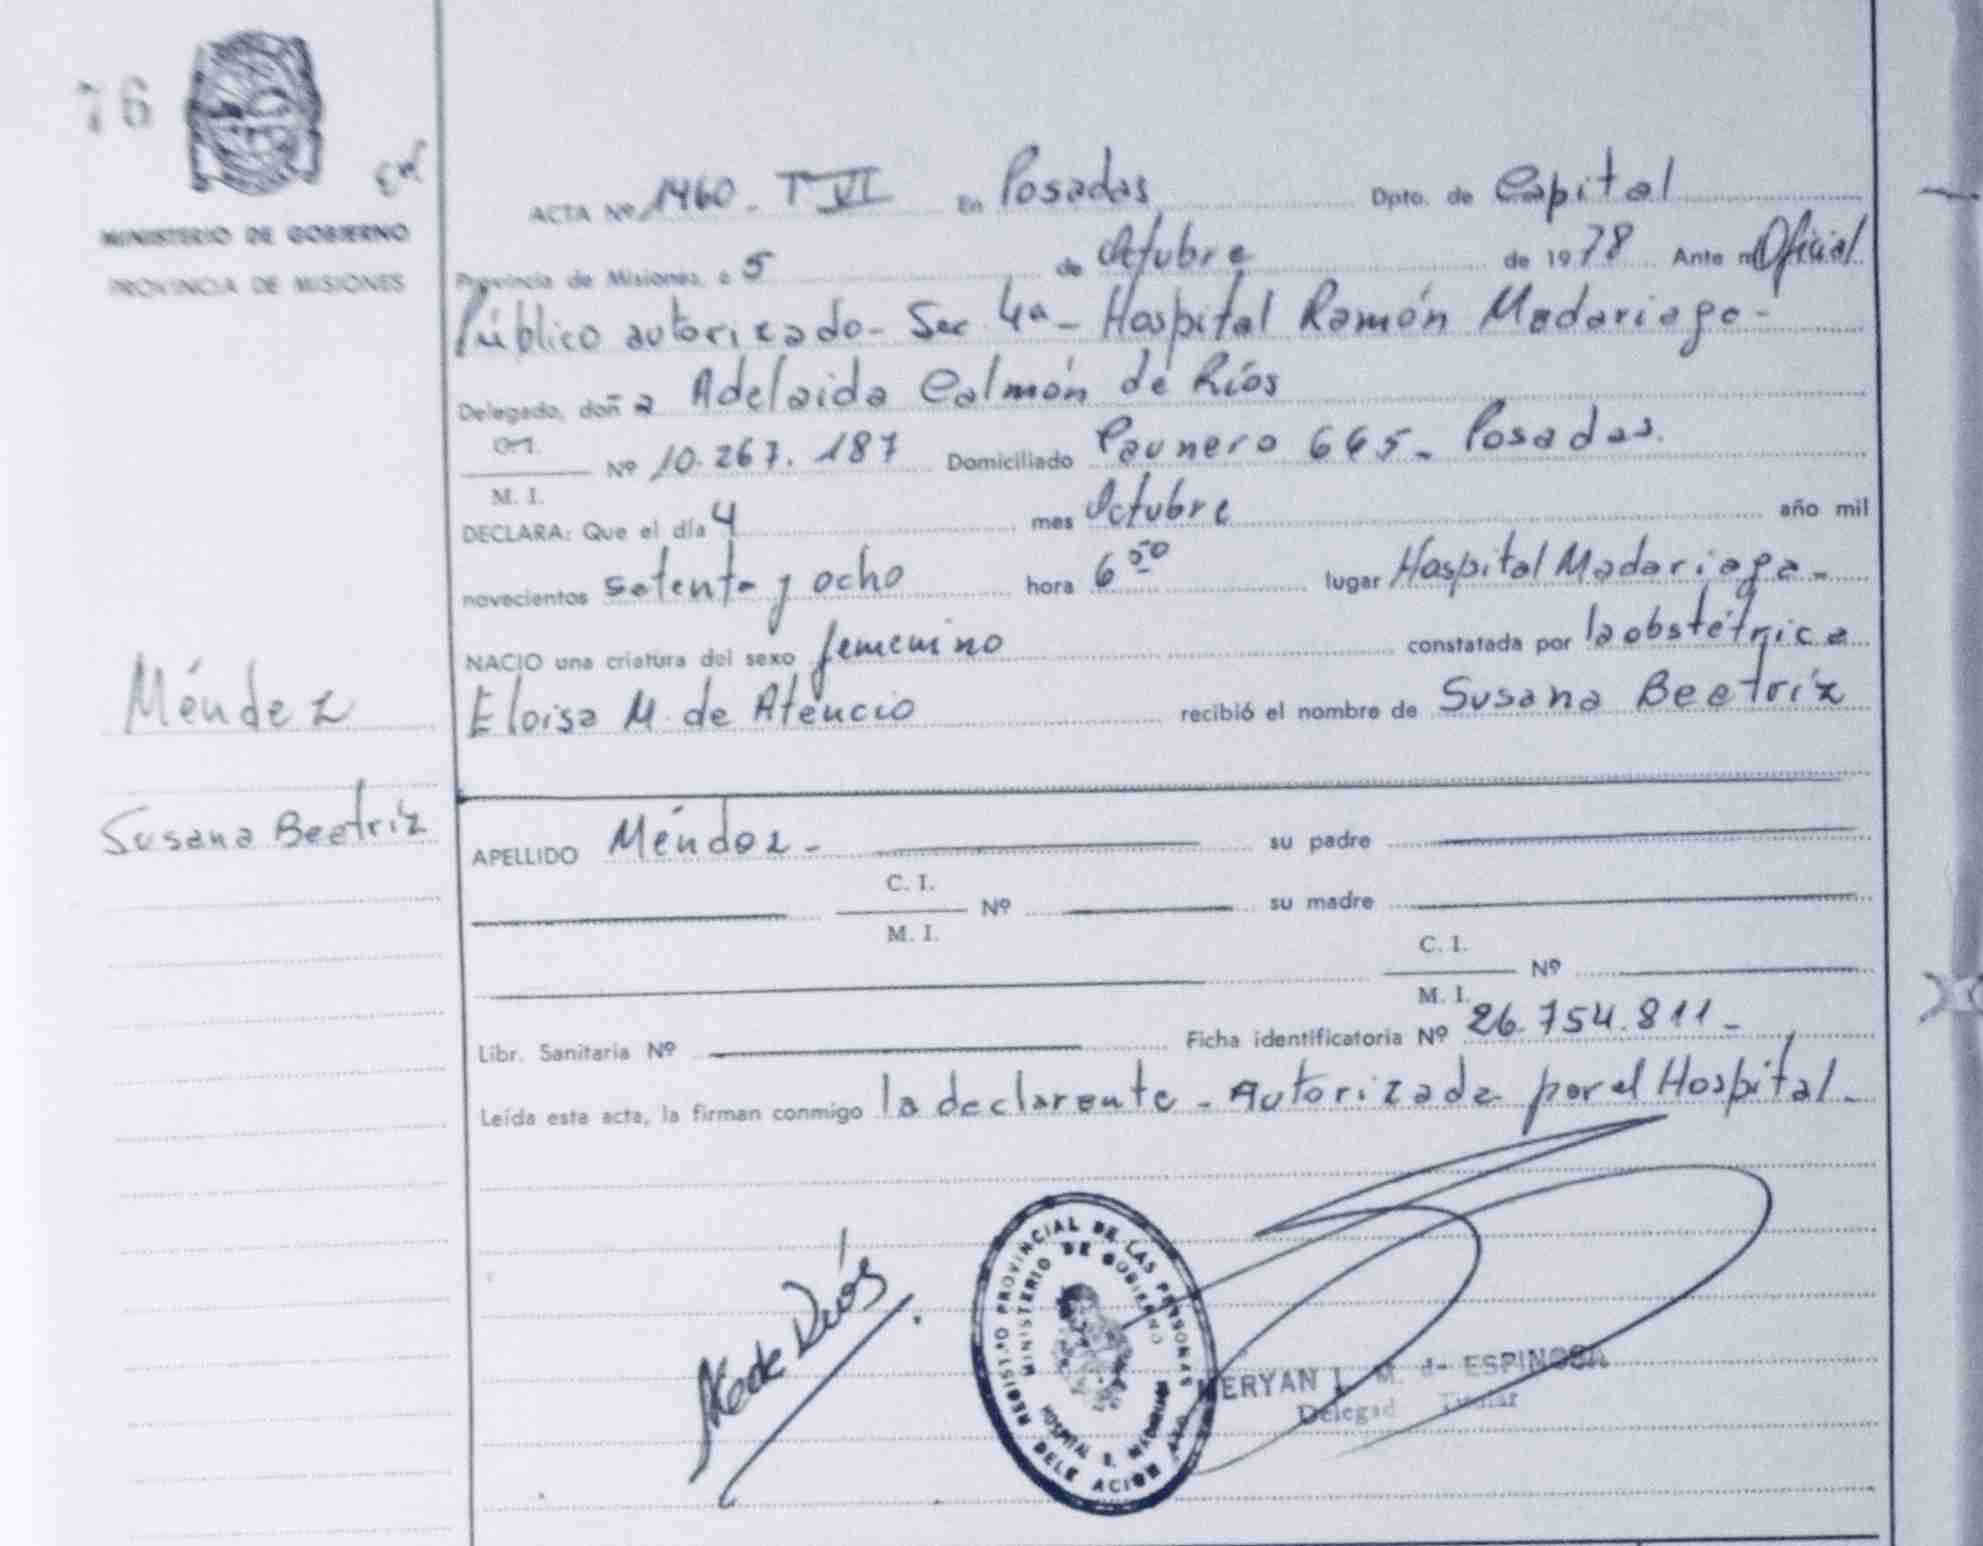 76
MINISTERIO DE GOBIERNO
PROVINCIA DE MISIONES
ACTA Nº 1460 - T VI En Posadas Dpto. de Capital
Provincia de Misiones, a 5 de Octubre de 1978 Ante mí Oficial
Público autorizado - Sec 4ª - Hospital Ramón Madariaga -
Delegado, doña Adelaida Calmón de Ríos
M. I. Nº 10.267.187 Domiciliado Paunero 665 - Posadas.
DECLARA: Que el día 4 mes Octubre año mil
novecientos setenta y ocho hora 6 50 lugar Hospital Madariaga -
NACIO una criatura del sexo femenino constatada por la obstétrica
Eloisa M. de Atencio recibió el nombre de Susana Beatriz
Méndez
Susana Beatriz
APELLIDO Méndez - su padre
C. I.
M. I. Nº su madre
C. I.
M. I. Nº
Libr. Sanitaria Nº Ficha identificatoria Nº 26.754.811 -
Leída esta acta, la firman conmigo la declarante - Autorizada por el Hospital -
de Ríos
REGISTRO PROVINCIAL DE LAS PERSONAS
MINISTERIO DE GOBIERNO
HOSPITAL R. MADARIAGA
MERYAN L. M. de ESPINOSA
Delegad Titular